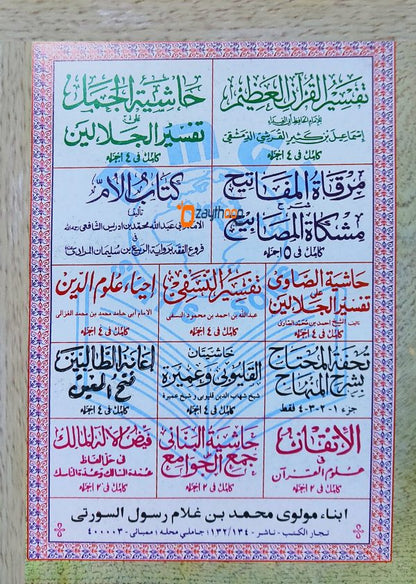 تفسير القرآن العظيم
للإمام الحافظ أبو الفداء
إسماعيل بن كثير القرشي الدمشقي
كامل فى ٤ اجزاء
حاشية الجمل
على
تفسير الجلالين
كامل فى ٤ اجزاء
مرقاة المفاتيح
شرح
مشكاة المصابيح
كامل فى ١٥ اجزاء
كتاب الأم
تأليف
الامام ابى عبد الله محمد بن ادريس الشافعى
فروع الفقه برواية الربيع بن سليمان المرادى
zaythoon
حاشية الصاوى
على
تفسير الجلالين
تأليف الشيخ احمد بن محمد الصاوى
كامل فى ٤ اجزاء
تفسير النسفى
عبدالله بن احمد بن محمود النسفى
كامل فى ٤ اجزاء
احياء علوم الدين
الامام أبى حامد محمد بن محمد الغزالى
كامل فى ٤ اجزاء
تحفة المحتاج
بشرح المنهاج
جزء ١-٢-٣-٤ فقط
حاشيتان
القليوبى وعميرة
شيخ شهاب الدين قليوبى و شيخ عميرة
كامل فى ٤ اجزاء
إعانة الطالبين
فتح المعين
كامل فى ٤ اجزاء
الإتقان
فى
علوم القرآن
كامل فى ٢ اجزاء
حاشية البنانى
على
جمع الجوامع
كامل فى ٢ اجزاء
فيض الاله المالك
فى حل الفاظ
عمدة السالك وعدة الناسك
كامل فى ٢ اجزاء
ابناء مولوى محمد بن غلام رسول السورتى
تجار الكتب - ناشر - ١٣٢/١٣٤: جاملي محله: ممبائى - ٤٠٠٠٠٣